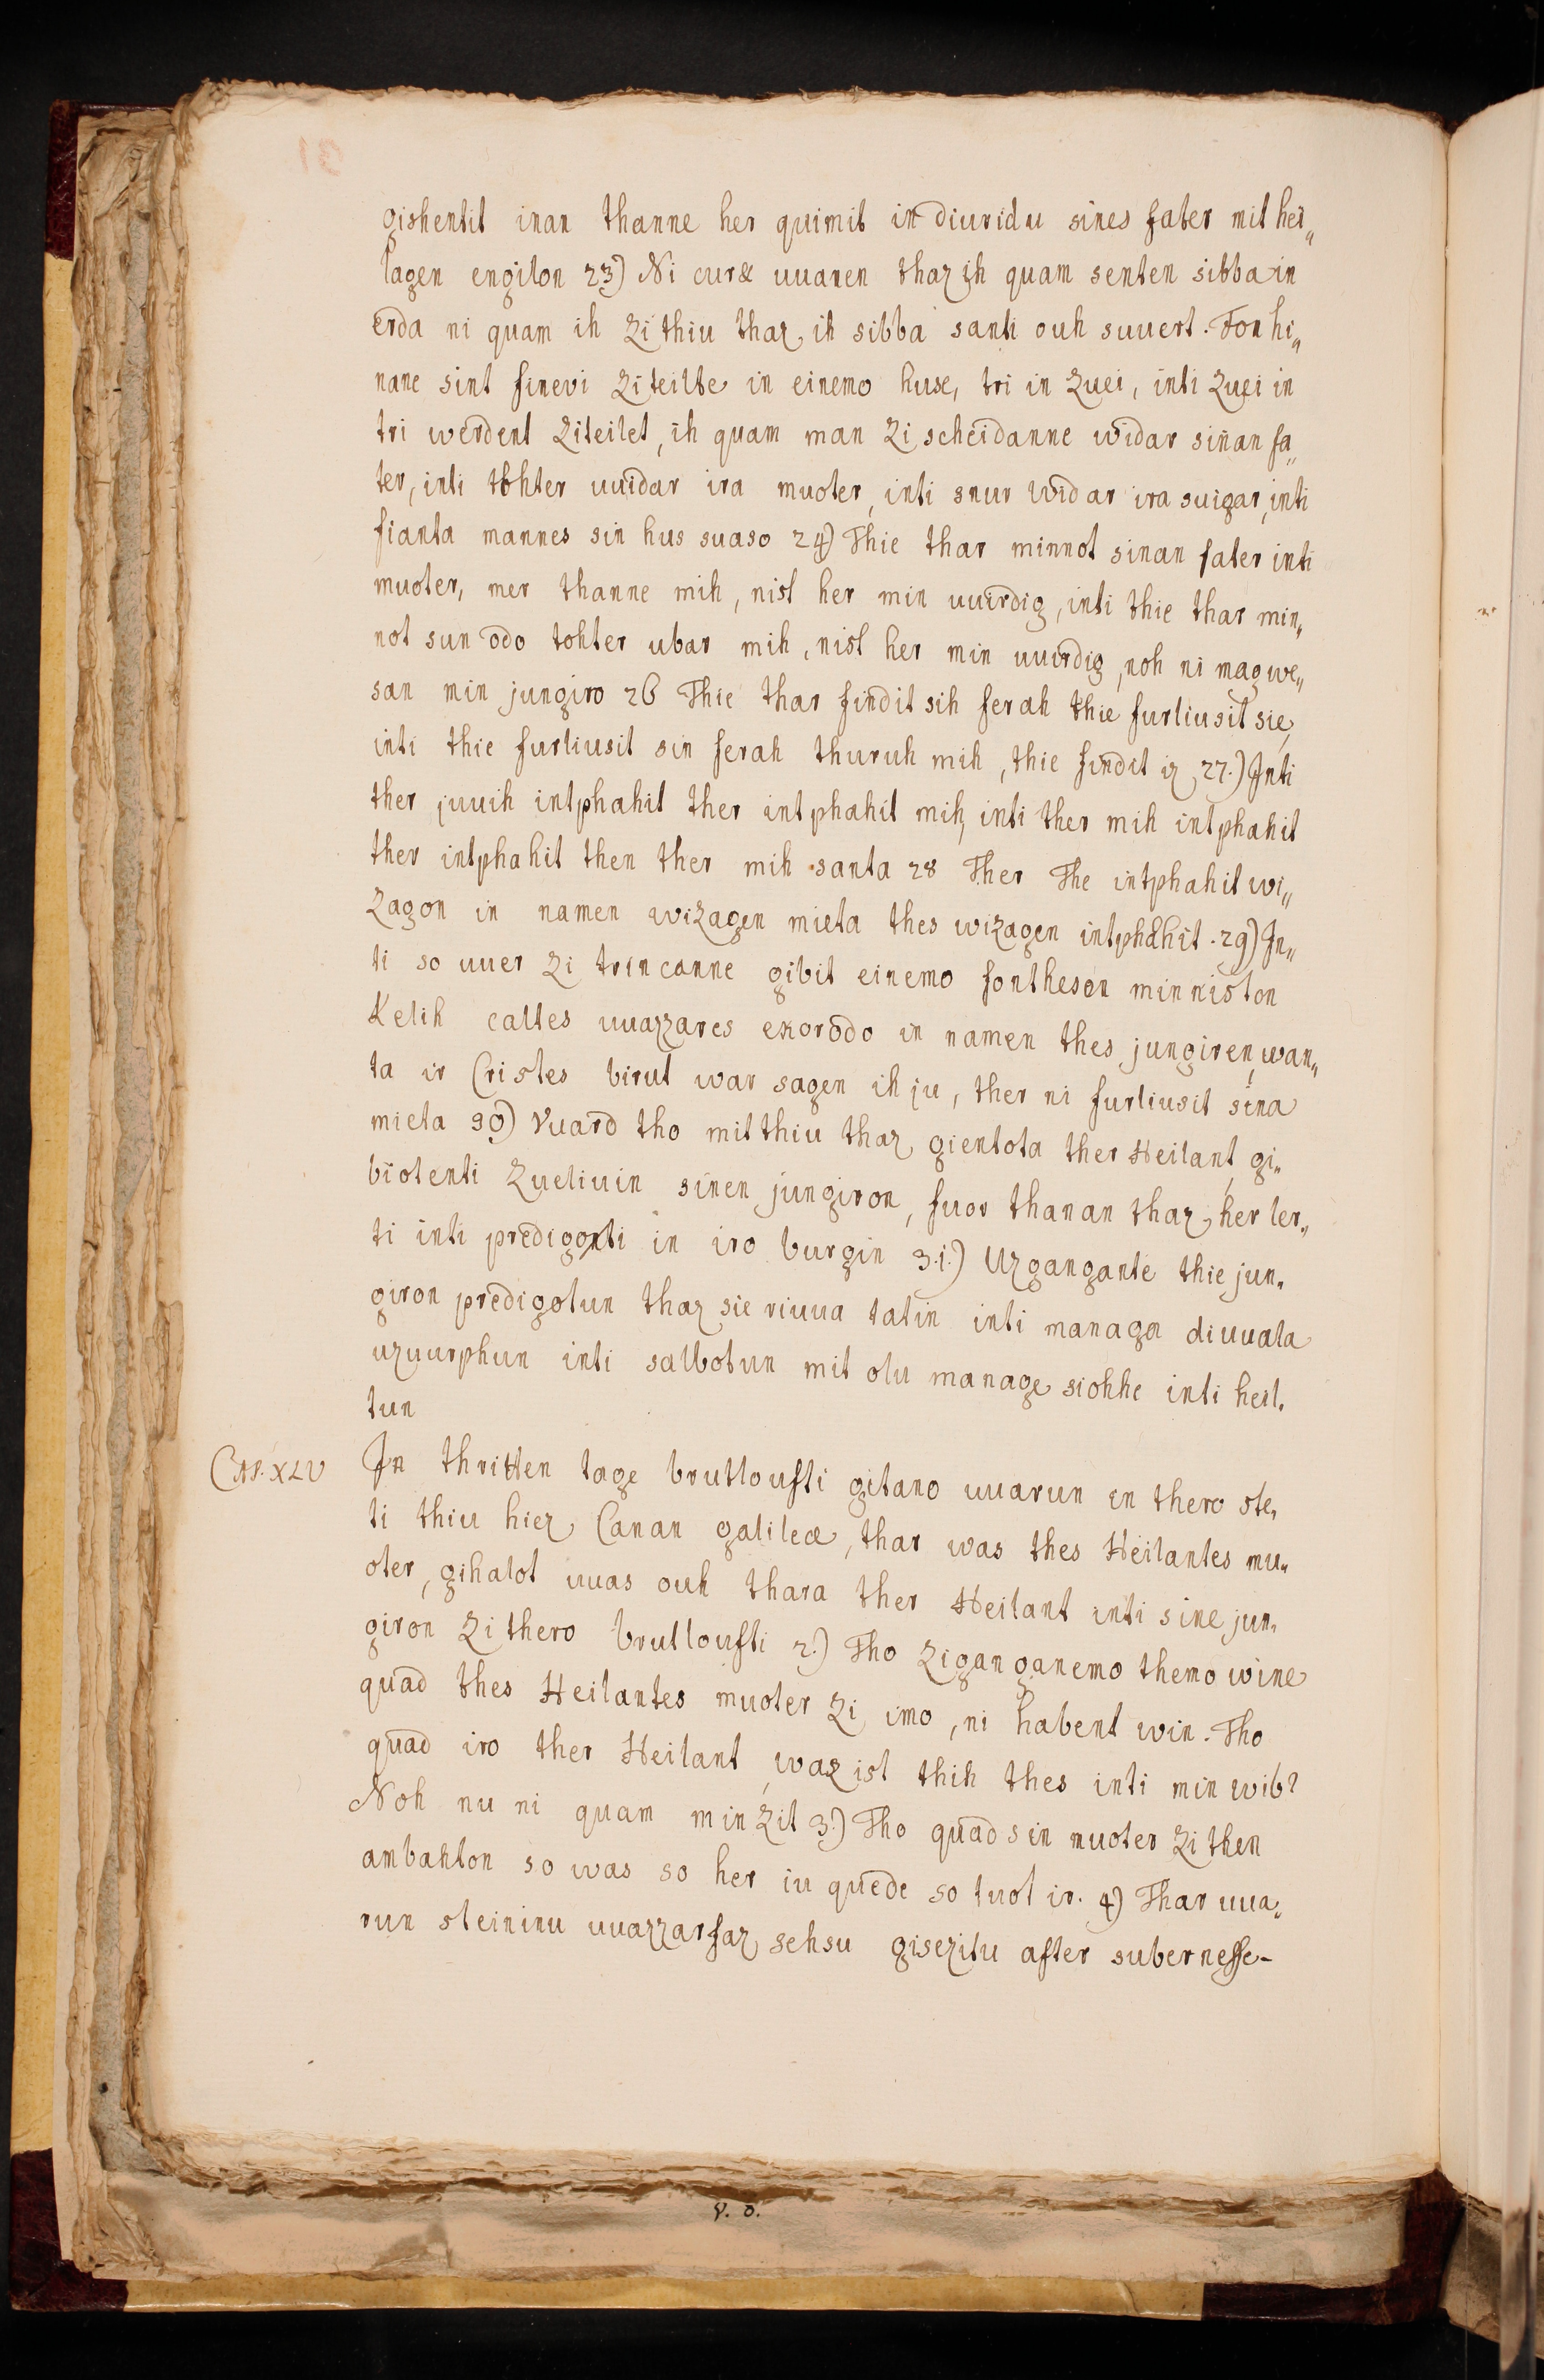 gishentit inan thanne her quimit in diuridu sines fater mit hei„
lagen engilon 23) Ni cur& uuanen thaz ih quam senten sibba in
erda ni quam ih zi thiu thaz ih sibba santi ouh suuert. Fon hi„
nane sint finevi ziteilte in einemo huse, tri in zuei, inti zuei in
tri werdent ziteilet, ih quam man zi scheidanne widar sinan fa„
ter, inti tohter uuidar ira muoter, inti snur widar ira suigar, inti
fianta mannes sin hus suaso 24) Thie thar minnot sinan fater inti
muoter, mer thanne mih, nist her min uuirdig, inti thie thar min„
not sun odo tohter ubar mih, nist her min uuirdig, noh ni mag we„
san min jungiro 26 Thie thar findit sih ferah thie furliusit sie,
inti thie furliusit sin ferah thuruh mih, thie findit iz 27.) Inti
ther juuih intphahit ther intphahit mih, inti ther mih intphahit
ther intphahit then ther mih santa 28 Ther The intphahit wi„
zagon in namen wizagen mieta thes wizagen intphahit. 29) In„
ti so uuer zi trincanne gibit einemo fontheson minniston
Kelih caltes uuazzares ekorodo in namen thes jungiren, wan„
ta ir Cristes birut war sagen ih ju, ther ni furliusit sina
mieta 30) Vuard tho mit thiu thaz gientota ther Heilant, gi„
biotenti zueliuin sinen jungiron, fuor thanan thaz her ler„
ti inti predigonti in iro burgin 3.1.) Uzgangante thie jun„
giron predigotun thaz sie riuua tatin inti managa diuuala
uzuurphun inti salbotun mit olu manage siohhe inti heil„
tun
Cap. XLV In thritten tage brutloufti gitano uuarun in thero ste„
ti thiu hiez Canan galileæ, thar was thes Heilantes mu„
oter, gihalot uuas ouh thara ther Heilant inti sine jun„
giron zi thero brutloufti 2.) Tho ziganganemo themo wine
quad thes Heilantes muoter zi imo, ni habent win. Tho
quad iro ther Heilant, waz ist thih thes inti min wib?
Noh nu ni quam min zit 3.) Tho quad sin muoter zi then
ambahton so was so her iu quede so tuot ir. 4) Thar uua„
run steininu uuazzarfaz sehsu gisezitu after subernesse-
V. D.